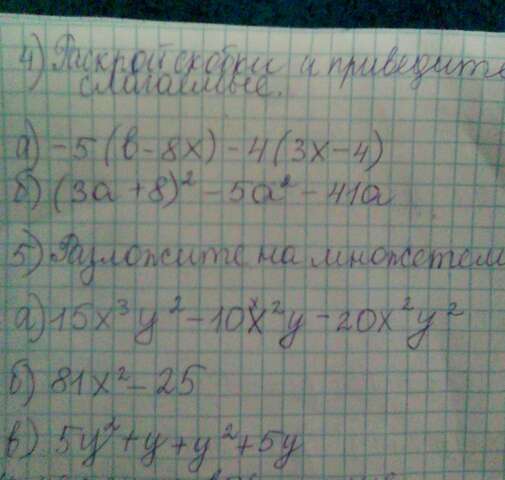 4) Раскрой скобки и приведите
слагаемые.
а) -5(в-8x)-4(3x-4)
б) (3a+8)²-5a²-41a
5) Разложите на множетели
а) 15x³y²-10x²y-20x²y²
б) 81x²-25
в) 5y²+y+y²+5y